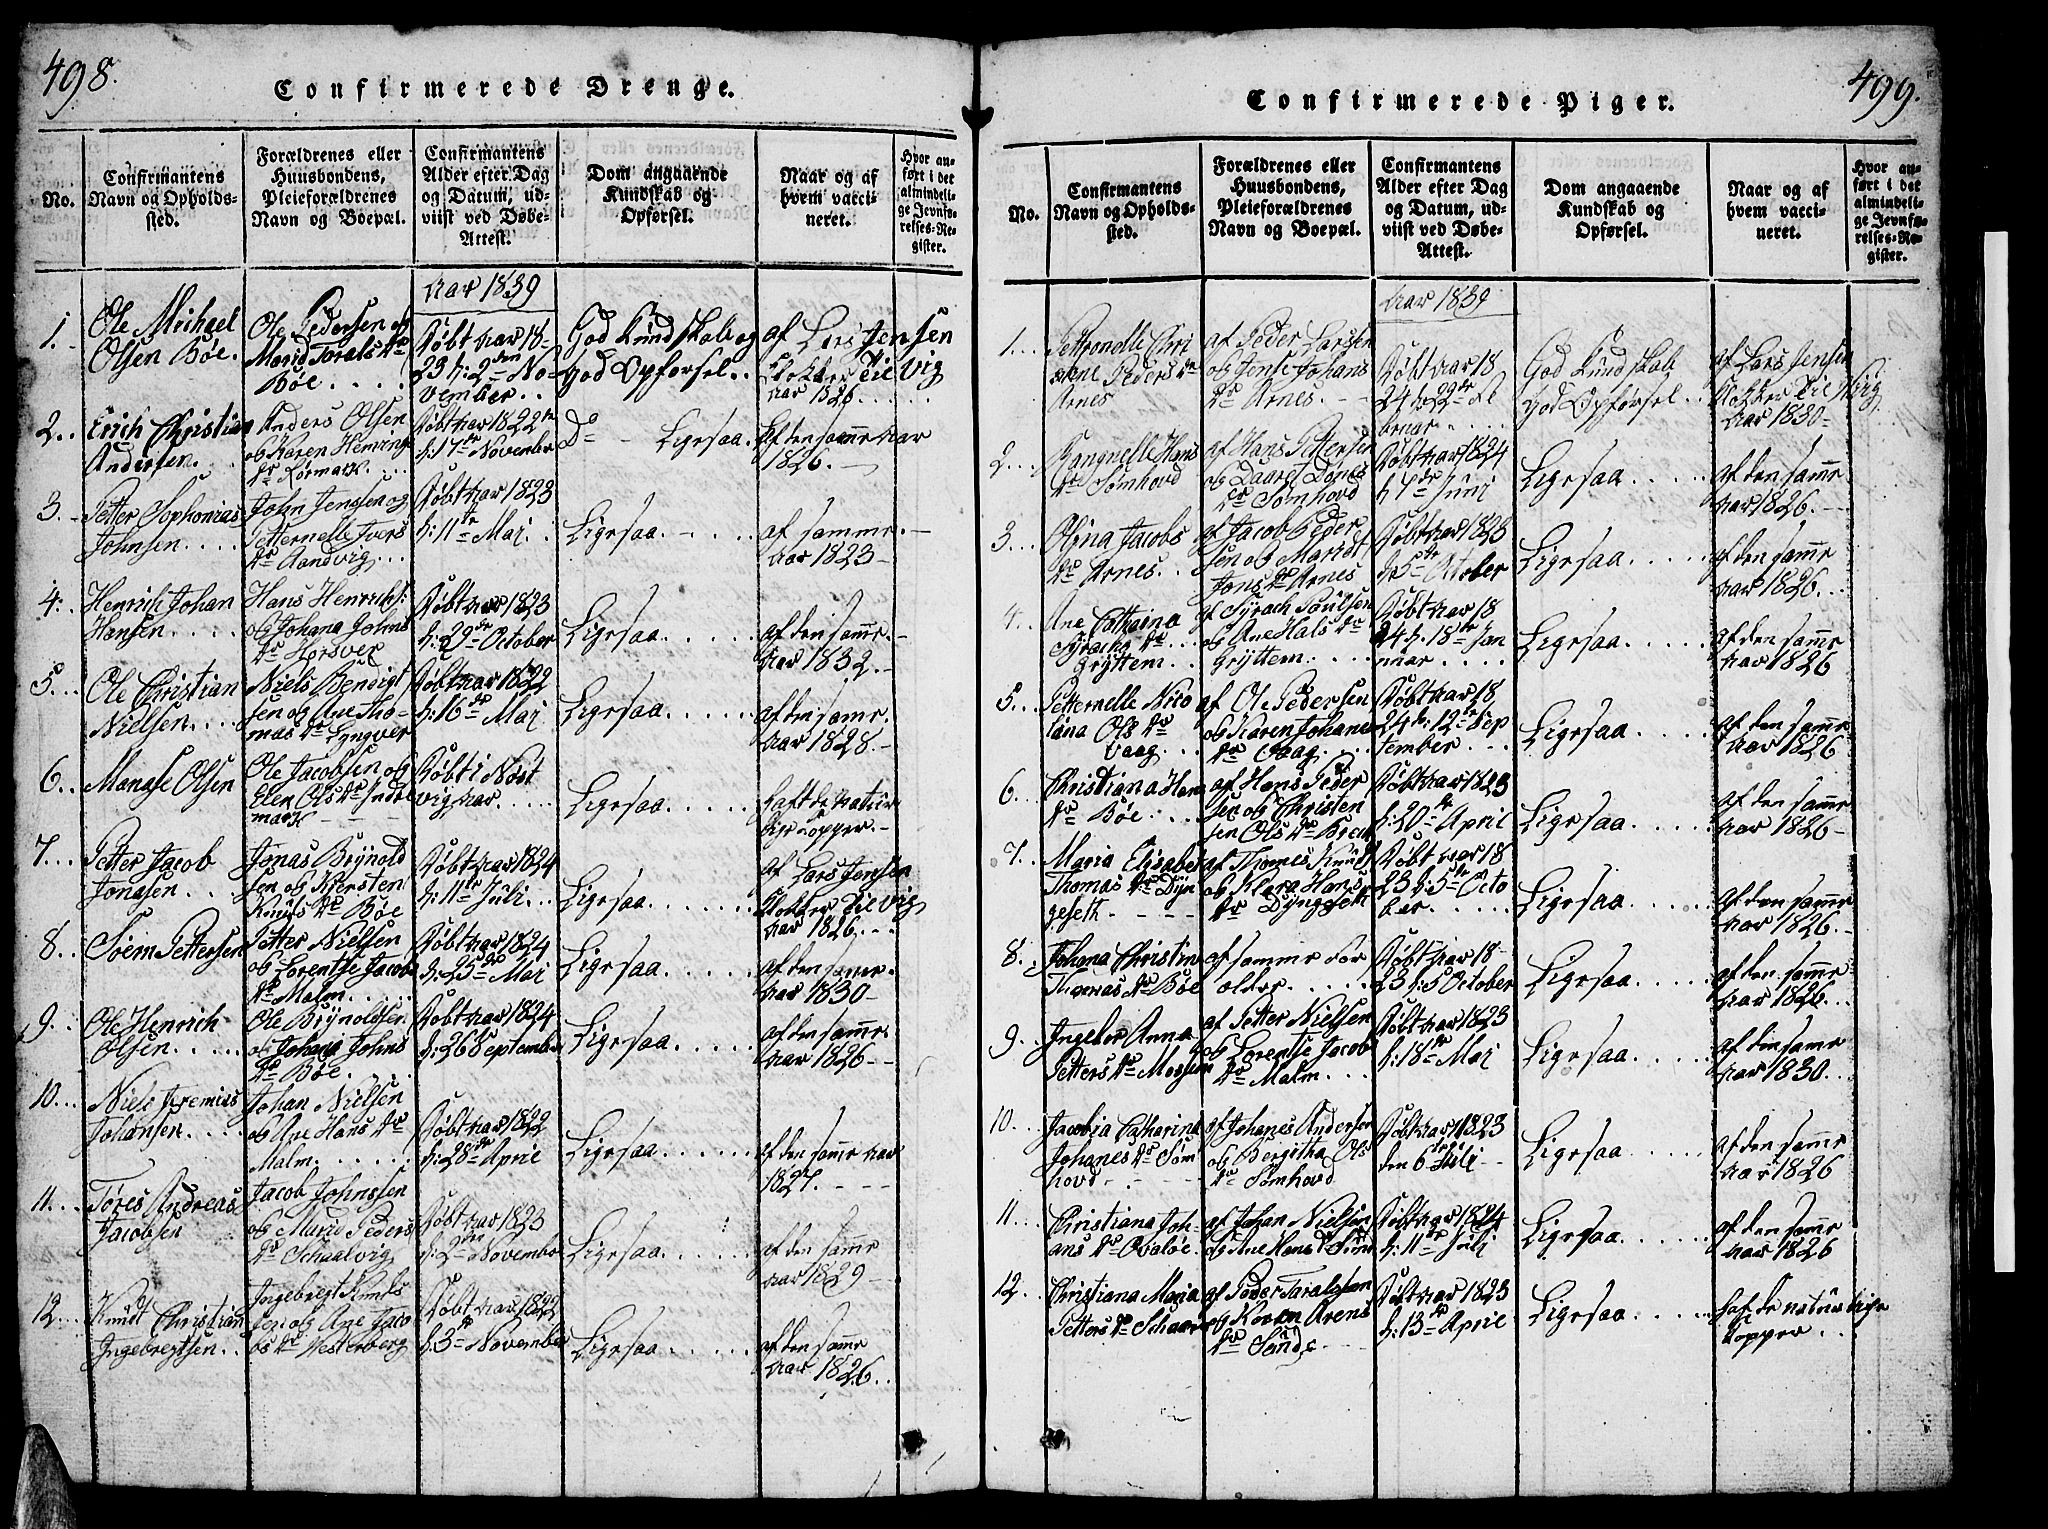 498.
Confirmerede Drenge.
No.
Confirmantens
Navn og Opholds-
sted.
Forældrenes eller
Huusbondens,
Pleieforældrenes
Navn og Boepæl.
Confirmantens
Alder efter Dag
og Datum, ud-
viist ved Døbe-
Attest.
Dom angaaende
Kundskab og
Opførsel.
Naar og af
hvem vacci-
neret.
Hvor an-
ført i det
almindeli-
ge Jevnfø-
relses-Re-
gister.
Aar 1839
1.
Ole Michael
Olsen Bøe.
Ole Pedersen og
Marid Torals Dr
Bøe....
Døbt Aar 18-
23 h: 2den No-
vember..
God Kundskab og
God Opførsel..
af Lars Jensen
Klokker Eie Vig
Aar 1826.....
2..
Erich Christian
Andersen.
Anders Olsen
og Karen Henings
Dr Rørmark...
Døbt Aar 1822
h: 17de November
Do - Ligesaa.
af den samme Aar
1826.-
3.
Petter Sophonias
Johnsen....
John Jensen og
Petternelle Ivers
Dr Aandvig...
Døbt Aar 1823
h: 11te Mai..
Ligesaa.-...
af samme.-
Aar 1823-
4.
Henrich Johan
Hansen....
Hans Henrichs:
og Johana Johns
Dr Horsver
Døbt Aar 1823
h: 29de October
Ligesaa......
af den samme.-
Aar 1832.-
5...
Ole Christian
Nielsen....
Niels Bendigt
sen og Ane Tho-
mas Dr Lyngver
Døbt Aar 1822
h: 16de Mai
Ligesaa......
af den samme.
Aar 1828.-
6..
Manase Olsen
Ole Jacobsen og
Elen Ols Dr Indre
mark
Døbt i Nøst
vig Aar.....
Ligesaa......
haft de natur
lige Kopper.-
7...
Petter Jacob
Jonasen...
Jonas Brynold
sen og Kiersten
Knuts Dr Bøe
Døbt Aar 1824
h: 11te Juli...
Ligesaa......
af Lars Jensen
Klokker Eie Vig
Aar 1826...
8..
Søern Pettersen
Petter Nielsen
og Lorentse Jacobs
Dr Malm....
Døbt Aar 1824
h: 25de Mai
Ligesaa......
af den samme.
Aar 1830-
9..
Ole Henrich
Olsen.....
Ole Brynoldsen
og Johana Johns
Dr Bøe....
Døbt Aar 1824
h: 26 September
Ligesaa......
af den samme.
Aar 1826--
10...
Niels Jremias
Johansen....
Johan Nielsen
og Ane Hans Dr
Malm......
Døbt Aar 1822
h: 28de April
Ligesaa......
af den samme Aar
1827.---
11...
Tøres Andreas
Jacobsen
Jacob Johnssen
og Marie Peders
Dr Schaalvig
Døbt Aar 1823
h: 2den Novembe
Ligesaa......
af den samme
Aar 1829-
12...
Knudt Christian
Ingebregtsen..
Ingebregt Knuts
sen og Ane Jaco
bs Dr Vesterberg
Døbt Aar 1822
h: 3de November
Ligesaa......
af den samme
Aar 1826..
499.
Confirmerede Piger.
No.
Confirmantens
Navn og Opholds-
sted.
Forældrenes eller
Huusbondens,
Pleieforældrenes
Navn og Boepæl.
Confirmantens
Alder efter Dag
og Datum, ud-
viist ved Døbe-
Attest.
Dom angaaende
Kundskab og
Opførsel.
Naar og af
hvem vacci-
neret.
Hvor an-
ført i det
almindeli-
ge Jevnfø-
relses-Re-
gister.
Aar 1839
1...
Pettronelle Chri
stine Peders Dr
Arnes
af Peder Larsen
og Jense Johans
Dr Arnes.--
Døbt Aar 18
24 h: 22de Fe
bruar.....
God Kundskab
God Opførsel...
af Lars Jensen
Klokker Eie Vig
Aar 1830-
2...
Rangnelle Hans
Dr Somhovd
af Hans Pettersen
og Daaret Dønes
Dr Somhovd
Døbt Aar 1824
h 7de Juni
Ligesaa.....
af den samme
Aar 1826.--
3...
Olina Jacobs
Dr Arnes..
af Jacob Peder
sen og Maridt
Jons Dr Arnes
Døbt Aar 1823
h: 5te October
Ligesaa.....
af den samme
Aar 1826...
4..
Ane Catharina
Syrachs Dr...
Gryttem....
af Syrach Poulsen
og Ane Hals Dr
Gryttem....
Døbt Aar 18
24 h: 18de Jan
nuar....
Ligesaa.....
af den samme
Aar 1826
5...
Petternelle Nico
liana Ols Dr
Vaag...
af Ole Pedersen
og Karen Johans
Dr Vaag...
Døbt Aar 18
24 h: 12te Sep
tember...
Ligesaa.....
af den samme
Aar 1826
6...
Christiana Hans
Dr Bøe...
af Hans Peder
sen og Christen
sen Ols Dr
Døbt Aar 1823
h: 20de April
Ligesaa.....
af den samme
Aar 1826-
7...
Maria Elisabet
Thomas Dr Dyn
geseth.---
af Thomes Knudt
og Klara Hans
Dr Dyngseth
Døbt Aar 18
23 h: 5te Octo
ber......
Ligesaa.....
af den samme
Aar 1826.-
8..
Johana Christin
Thomas Dr Bøe
af samme For
ældre......
Døbt Aar 18-
23 h: 5 October
Ligesaa.....
af den samme
Aar 1826...
9..
Ingebor Anna
Petters Dr
af Petter Nielsen
og Lorentse Jacobs
Dr Malm...
Døbt Aar 1823
h: 18de Mai
Ligesaa.....
af den samme
Aar 1830...
10..
Jacobia Catharina
Johanes Dr Som
hovd
af Johanes Andersen
og Bergitha Ols
Dr Somhovd
Døbt Aar 1823
den 6te Juli--
Ligesaa.....
af den samme
Aar 1826
11...
Christiana Joh-
ans Dr Ovaløe.
af Johan Nielsen
Døbt Aar 1824
h: 11te Juli
Ligesaa.....
af den samme
Aar 1826
12..
Christiana Maria
Petters Dr
af Peder Taralsen
og Karen Arens
Dr Sønde
Døbt Aar 1823
h: 13de April
Ligesaa.....
haf de naturlige
Kopper..